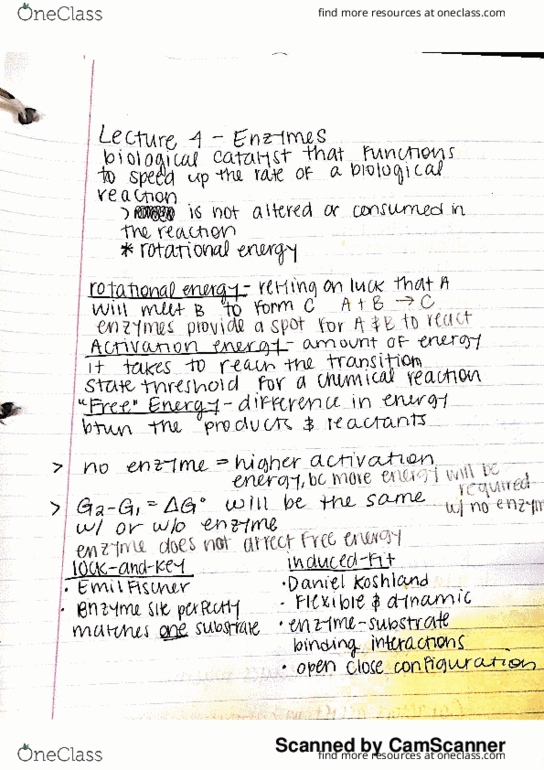 OneClass
find more resources at oneclass.com
Lecture 4 - Enzymes
biological catalyst that functions
to speed up the rate of a biological
reaction
> is not altered or consumed in
the reaction
* rotational energy
rotational energy - relling on luck that A
will meet B to form C A + B → C
enzymes provide a spot for A & B to react
Activation energy - amount of energy
it takes to reach the transition
state threshold for a chemical reaction
"Free" Energy - difference in energy
btwn the products & reactants
> no enzyme = higher activation
energy, bc more energy will be
required
w/ no enzym
> G2-G1 = ΔG° will be the same
w/ or w/o enzyme
enzyme does not affect free energy
lock-and-key
• Emil Fischer
• Enzyme site perfectly
matches one substrate
induced-fit
• Daniel Koshland
• Flexible & dynamic
• enzyme-substrate
binding interactions
• open close configuration
Scanned by CamScanner
OneClass
find more resources at oneclass.com